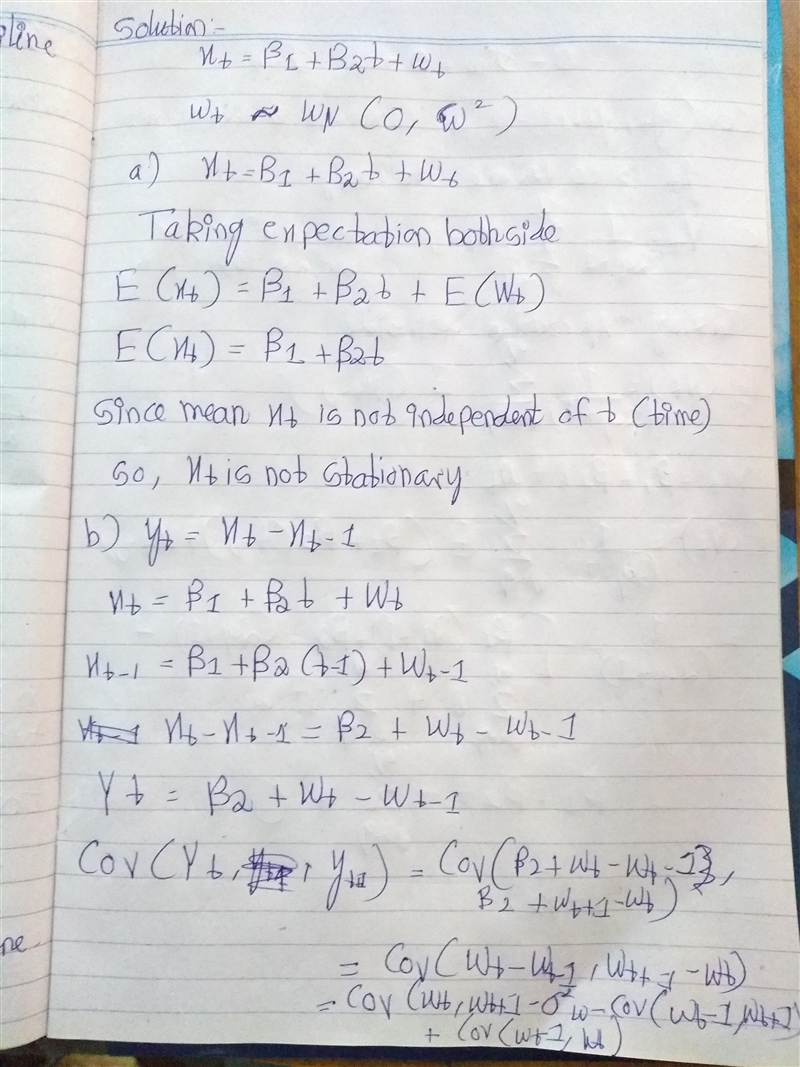 iline
Solution:-
xt = β1 + β2t + wt
wt ~ WN (0, σw²)
a) xt = β1 + β2t + wt
Taking expectation bothside
E (xt) = β1 + β2t + E(Wt)
E(xt) = β1 + β2t
Since mean xt is not independent of t (time)
So, xt is not stationary
b) yt = xt - xt-1
xt = β1 + β2t + Wt
xt-1 = β1 + β2 (t-1) + Wt-1
xt - xt-1 = β2 + Wt - Wt-1
Yt = β2 + Wt - Wt-1
Cov(Yt, , yt+1) = Cov(β2 + Wt - Wt-1},
β2 + Wt+1 - Wt)
= Cov(Wt - Wt-1, Wt+1 - Wt)
= Cov (Wt, Wt+1 - σ²w - Cov(Wt-1, Wt+1)
+ Cov(Wt-1, Wt)
ne